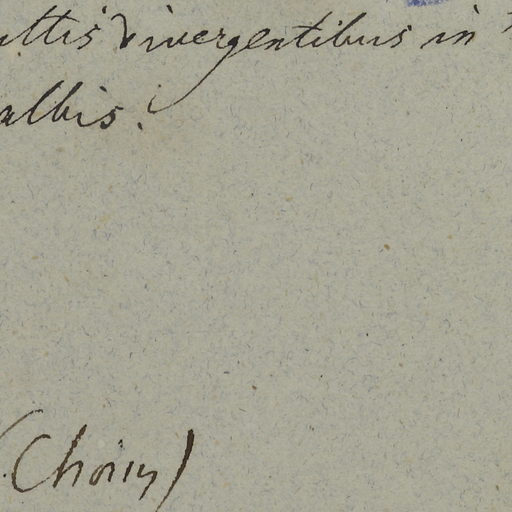 divergentibus in
albis.
(Choisy)